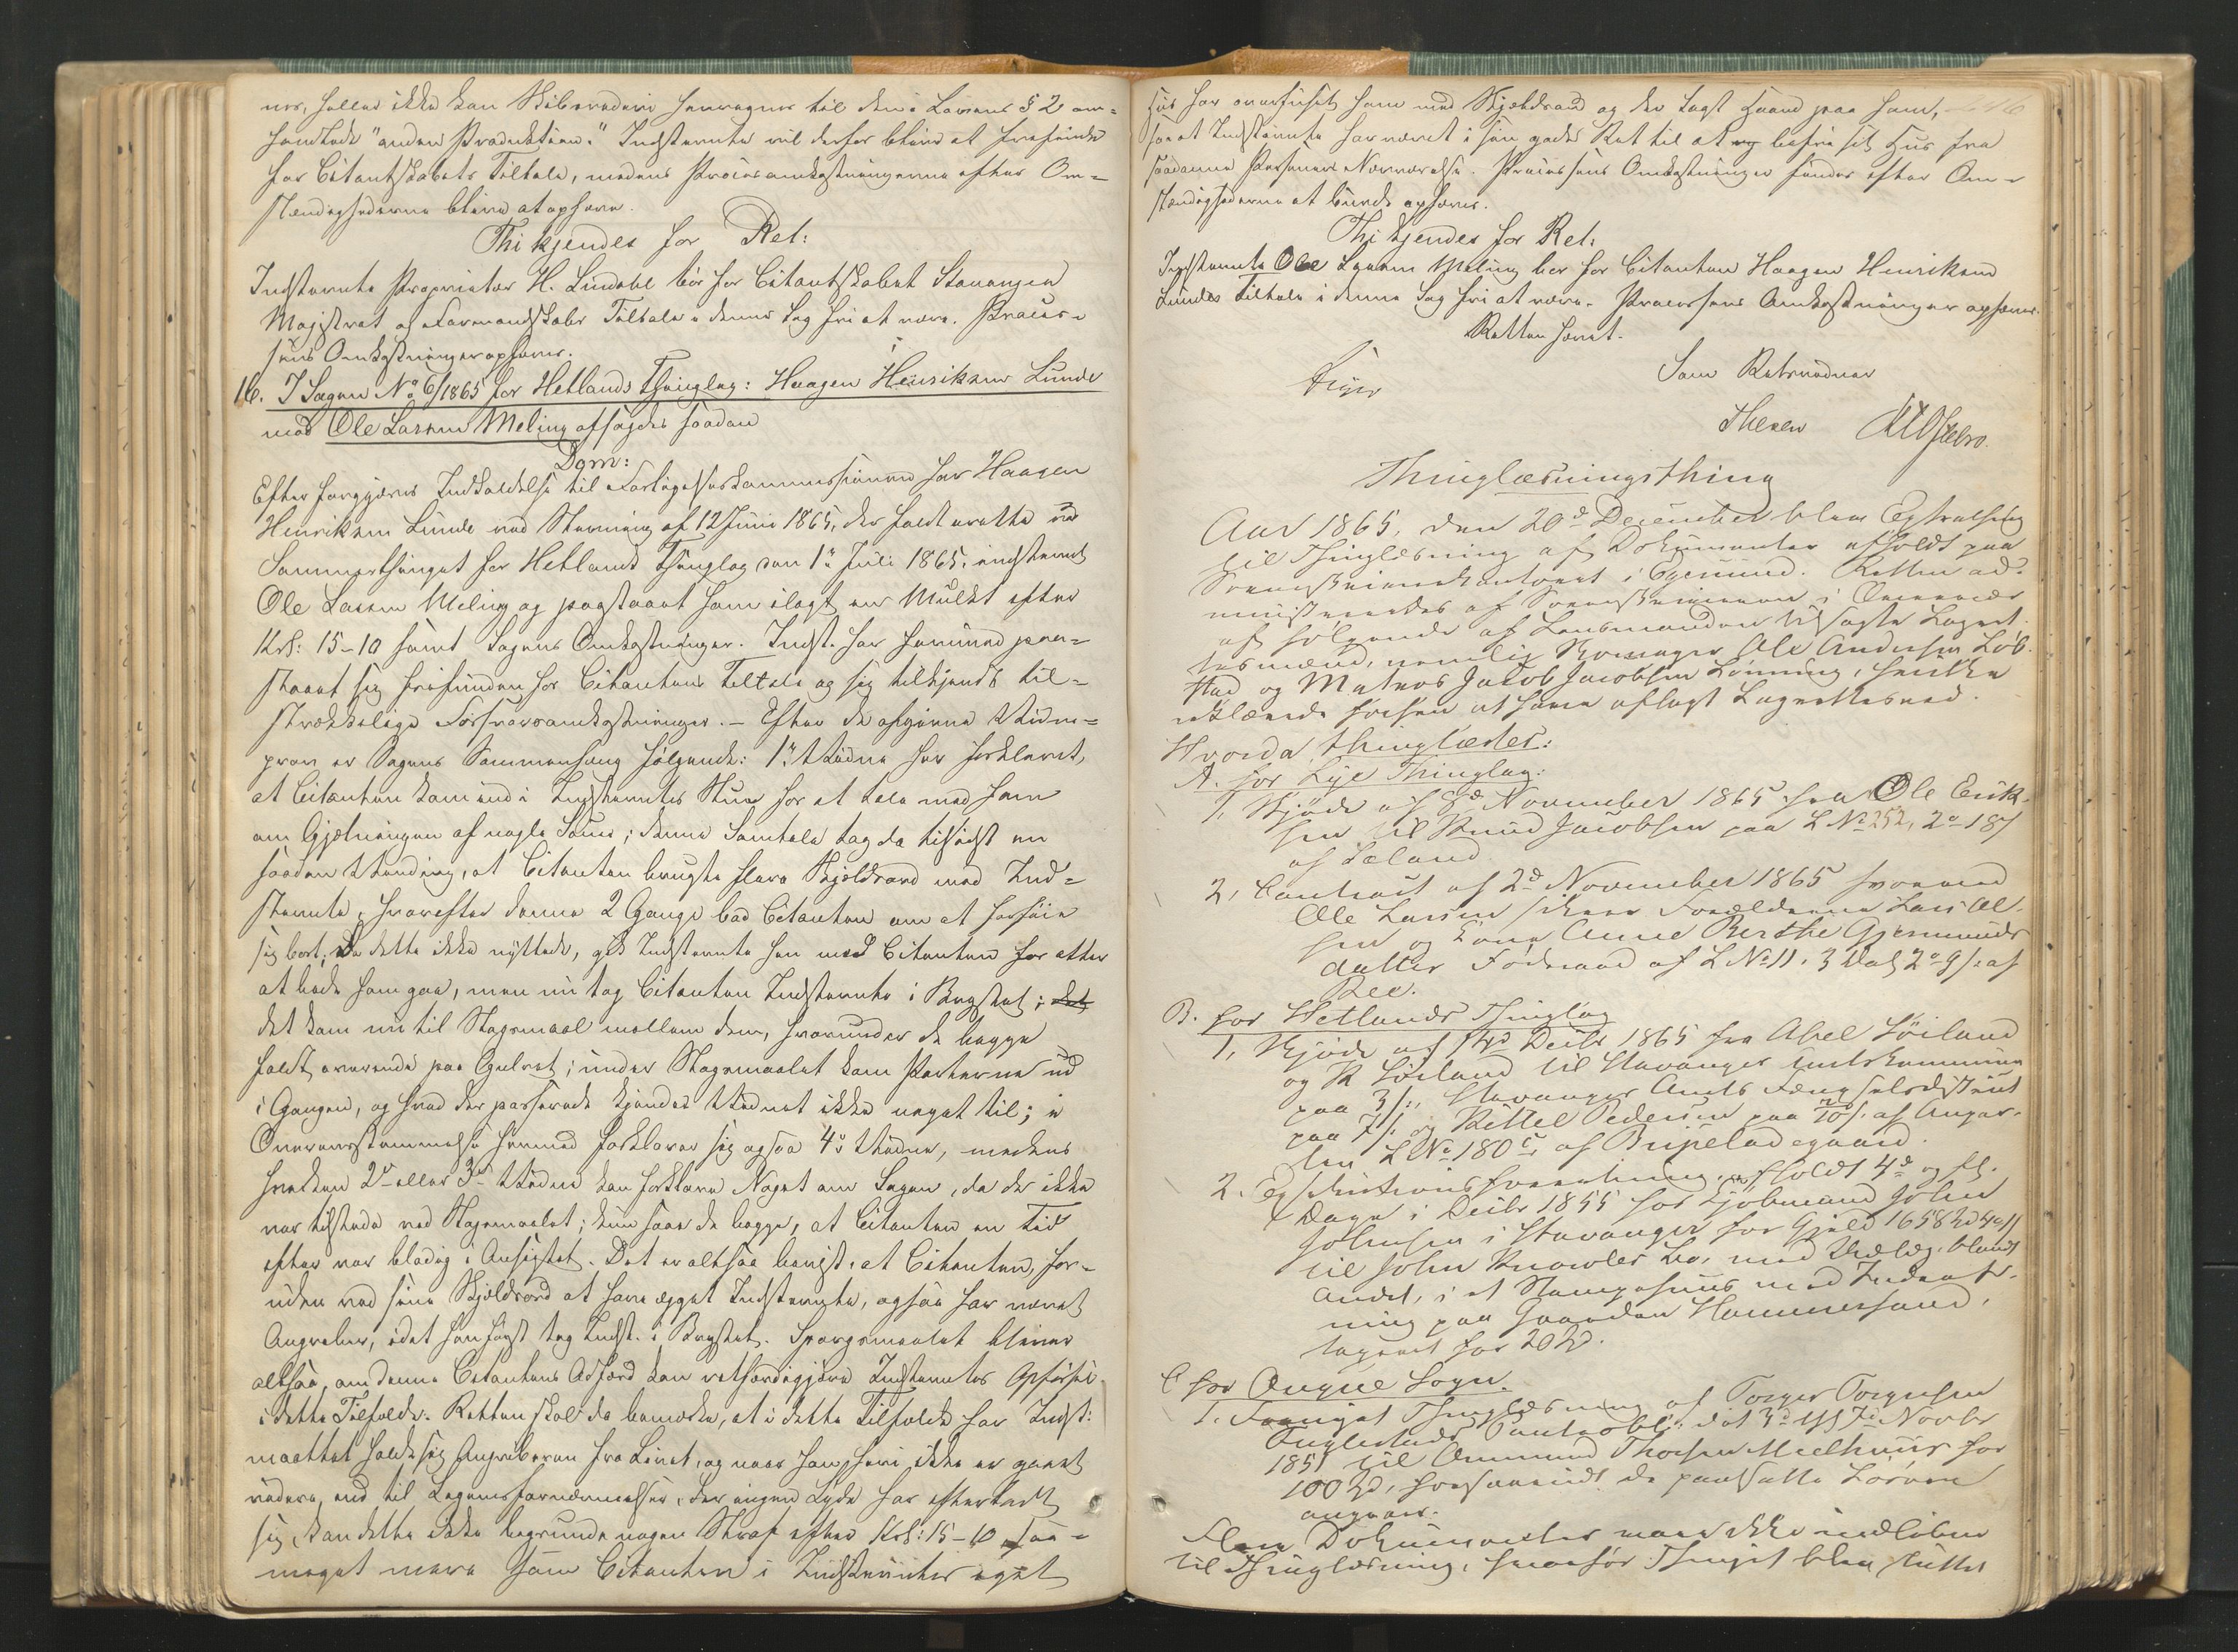 ner, heller ikke kan Skibsrederi henregnes til den i Lovens § 2 om=
handlede "anden Produktion." Indstevnte vil derfor blive at frifinde
for Citantskabets Tiltale, medens Procesomkostningerne efter Om=
stændighederne blive at ophæve.
Thi kjendes for Ret:
Indstevnte Proprietær H. Lindahl bør for Citantskabet Stavanger
Magistrat og Formandskabs Tiltale i denne Sag fri at være. Proces=
sens Omkostninger ophæves.
16. I Sagen No 6/1865 for Hetlands Thinglag: Haagen Henriksen Lunde
mod Ole Larsen Meling afsagdes saadan
Dom:
Efter forgjæves Indkaldelse til Forligelseskommissionen har Haagen
Henriksen Lunde ved Stevning af 12 Juni 1865, der faldt i rette ved
Sommerthinget for Hetlands Thinglag den 1ste Juli 1865, indstevnt
Ole Larsen Meling og paastaaet ham ilagt en Mulkt efter
Krl: 15-10 samt Sagens Omkostninger. Indst. har herimod paa=
staaet sig frifunden for Citantens Tiltale og sig tilkjendt til=
strækkelige Forsvarsomkostninger. – Efter de afgivne Vidne=
prov er Sagens Sammenhæng følgende: 1ste Vidne har forklaret,
at Citanten kom ind i Indstevntes Stue for at tale med ham
om Gjætningen af nogle Sauer; denne Samtale tog da tilsidst en
saadan Vending, at Citanten brugte flere Skjeldsord mod Ind=
stevnte, hvorefter denne 2 Gange bad Citanten om at forføie
sig bort; Da dette ikke nyttede, gik Indstevnte hen mod Citanten for atter
at bede ham gaa, men nu tog Citanten Indstevnte i Brystet; det
det kom nu til Slagsmaal mellem dem, hvorunder de begge
faldt overende paa Gulvet; under Slagsmaalet kom Parterne ud
i Gangen, og hvad der passerede kjender Vidnet ikke noget til; i
Overensstemmelse hermed forklarer sig ogsaa 4de Vidne, medens
hverken 2det eller 3die Vidne kan forklare Noget om Sagen, da de ikke
var tilstede ved Slagsmaalet; kun saae de begge, at Citanten en Tid
efter var blodig i Ansigtet. Det er altsaa bevist, at Citanten, for=
uden ved sine Skjeldsord at have ægget Indstevnte, ogsaa har været
Angriber, idet han først tog Indst. i Brystet. Spørgsmaalet bliver
altsaa, om denne Citantens Adfærd kan retfærdiggjøre Indstevntes Opførsel
i dette Tilfælde. Retten skal da bemærke, at i dette Tilfælde har Indst:
maattet holde sig Angriberen fra Livet, og naar han heri ikke er gaaet
videre, end til Legemsfornærmelser, der ingen Lyde har efterladt
sig, kan dette ikke begrunde nogen Straf efter Krl: 15-10 saa=
meget mere som Citanten i Indstevntes eget
Hus har overfuset ham med Skjeldsord og der lagt Haand paa ham,
saa at Indstevnte har været i sin gode Ret til at befri sit Hus fra
saadanne Personers Nærværelse. Processens Omkostninger findes efter Om=
stændighederne at burde ophæves.
Thi kjendes for Ret:
Indstevnte Ole Larsen Meling bør for Citanten Haagen Henriksen
Lundes Tiltale i denne Sag fri at være. Processens Omkostninger ophæves.
Retten hævet.
Feyer
Som Retsvidner
Thesen
Thinglæsningsthing
Aar 1865, den 20de December blev Extrathing
til Thinglæsning af Dokumenter afholdt paa
Sorenskriverkontoret i Egersund. Retten ad=
ministreredes af Sorenskriveren i Overvær
af følgende af Lensmanden tilsagte Lagret=
tesmænd, nemlig Ole Andersen
og Matros Jakob Jacobsen Lønning, hvilke
erklærede forhen at have aflagt Lagrettesed.
Hvorda thinglæstes:
A. for Lye Thinglag:
1, Skjøde af 8de November 1865 fra Ole Erik=
sen til Knud Jacobsen paa L No 252, 2 18
af Læland
2, Contract af 2den November 1865 hvorved
Ole Larsen sikrer Forældrene Lars Ol=
sen og Kone Anne Berthe Gjermunds
datter Føderaad af L No 11. 3 Dal 2 9 /: af
Ree.
B. for Hetlands Thinglag
1, Skjøde af Decbr 1865 fra Abel Løiland
og R Løiland til Stavanger Amtskommune
paa 3/:, Stavanger Amts Fængselsdistrict
paa 7/: og Kittel Pedersen paa af
L No 180 af Bispeladegaard.
2. Exekutionsforretning, afholdt 4de og fl.
Dage i Decbr 1855 hos Kjøbmand John
Johnsen i Stavanger for Gjæld 1658
til John Knowles Co, med Udlæg, blandt
Andet, i et med Inden=
ning paa Gaarden Hammersand,
taxeret for 20
C for Ougne Sogn.
1. Fornyet Thinglæsning af Torger Torgersen
Fuglestads Pantobl: dat 3die 7de Novbr
1851 til Ommund Thorsen Mælhuus for
100, forsaavidt de pantsatte Løsøre
angaar.
Flere Dokumenter vare ikke indløbne
til Thinglæsning, hvorfor Thinget blev sluttet